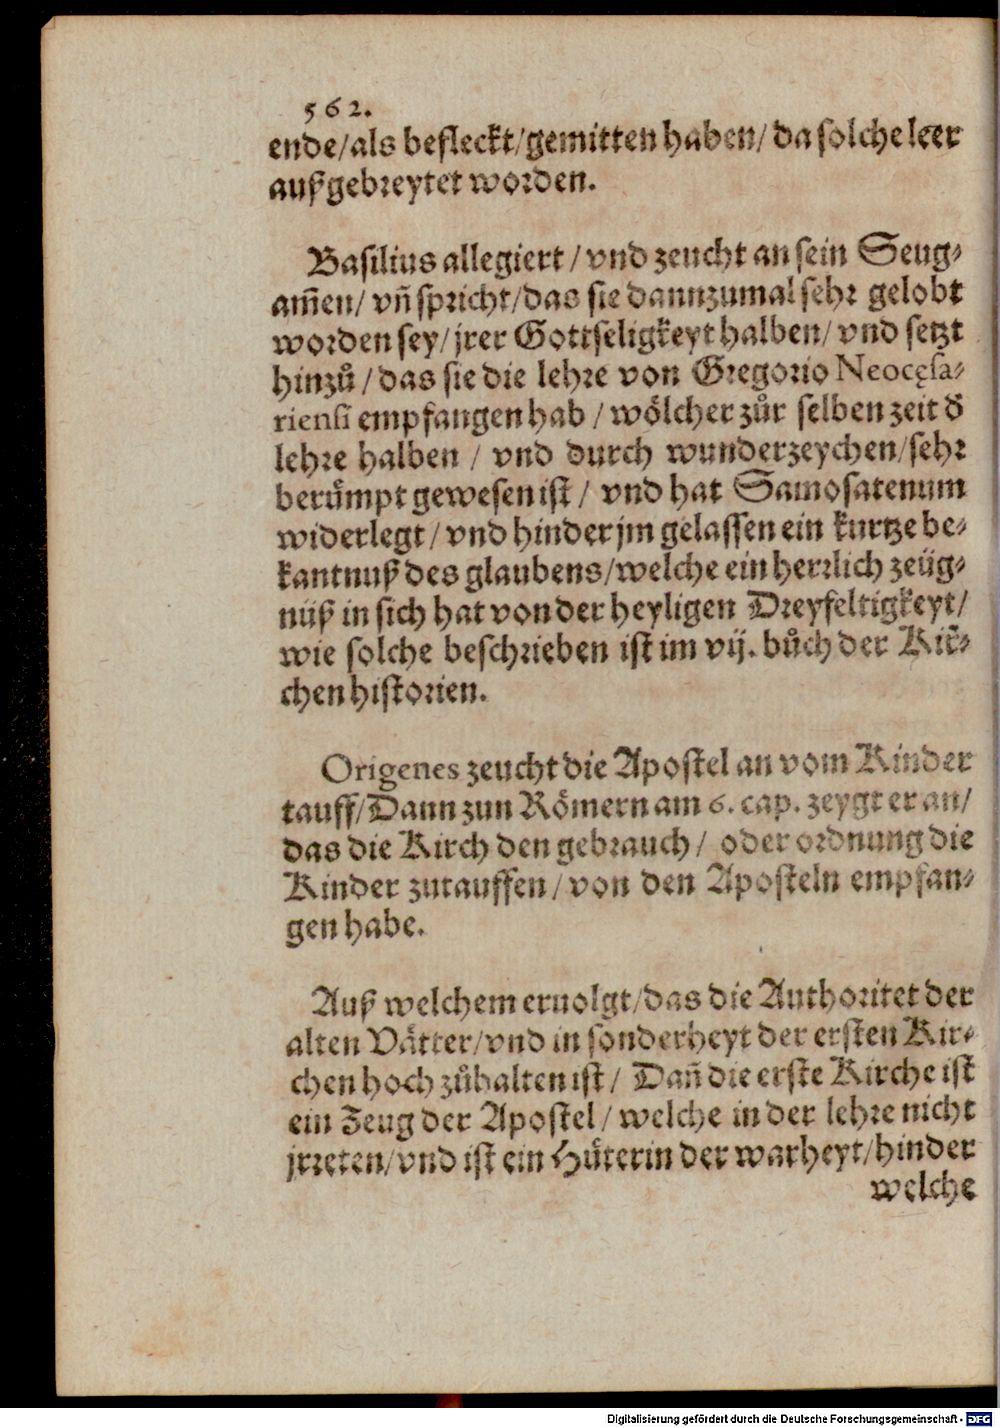 562.
ende/als befleckt/gemitten haben/ da solche leer
außgebreytet worden.
Basilius allegiert / vnd zeucht an sein Seug⸗
am̃en/ vñ spricht/das sie dannzumal sehr gelobt
worden sey/ jrer Gottseligkeyt halben/ vnd setzt
hinzů / das sie die lehre von Gregorio Neocęsa-
riensi empfangen hab / wölcher zůr selben zeit d̄
lehre halben / vnd durch wunderzeychen/sehr
berůmpt gewesen ist / vnd hat Samosatenum
widerlegt / vnd hinder jm gelassen ein kurtze be⸗
kantnuß des glaubens/welche ein herrlich zeüg⸗
nüß in sich hat von der heyligen Dreyfeltigkeyt/
wie solche beschrieben ist im vij. bůch der Kir⸗
chen historien.
Origenes zeucht die Apostel an vom Kinder
tauff/Dann zun Römern am 6. cap. zeygt er an/
das die Kirch den gebrauch / oder ordnung die
Kinder zutauffen / von den Aposteln empfan⸗
gen habe.
Auß welchem eruolgt/das die Authoritet der
alten Vätter/vnd in sonderheyt der ersten Kir⸗
chen hoch zůhalten ist / Dañ die erste Kirche ist
ein Zeug der Apostel / welche in der lehre nicht
jrreten/vnd ist ein Hüterin der warheyt/hinder
welche
Digitalisierung gefördert durch die Deutsche Forschungsgemeinschaft - DFG